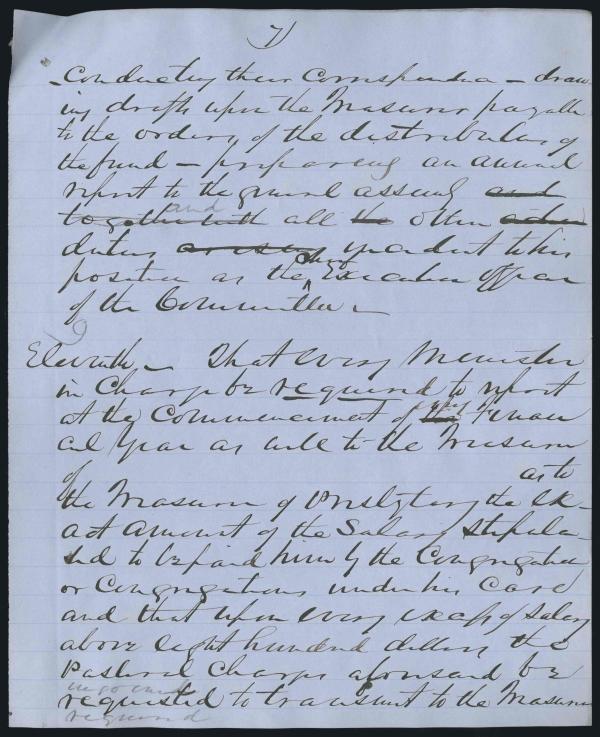 7)
Conducting their Correspondence – draw-
ing drafts upon the Treasurer payable
to the orders of the distribution of
the fund – preparing an annual
report to the general assembly and
together with and all the other
duties incident to his
position as the Chief Executive Officer
of the Committee –
9
Eleventh – That every Minister
in Charge be required to report
at the Commencement of the Finan
cial Year as well to the Treasurer
of as to
the Treasurer of Presbytery the ex-
act amount of the Salary stipula-
ted to be paid him by the Congregation
or Congregations under his Care
and that upon every excess of Salary
above eight hundred dollars the
Pastoral Charge aforesaid be
requested to transmit to the Treasurer
required